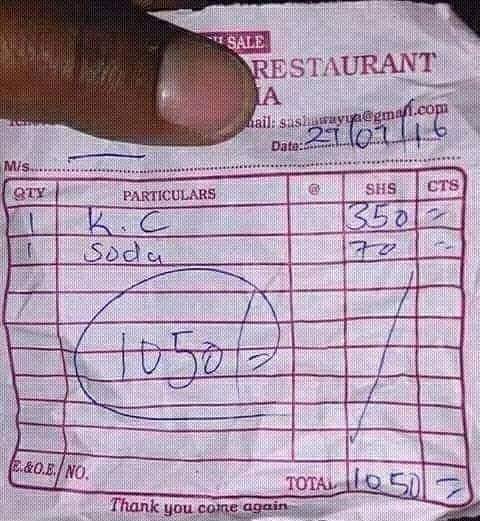 SALE
RESTAURANT
IA
ail: sashawayua@gmail.com
Date: 27/07/16
M/s
QTY PARTICULARS @ SHS CTS
1 K.C 350 =
1 Soda 70 =
1050/=
E.&O.E./NO. TOTAL 1050 =
Thank you come again